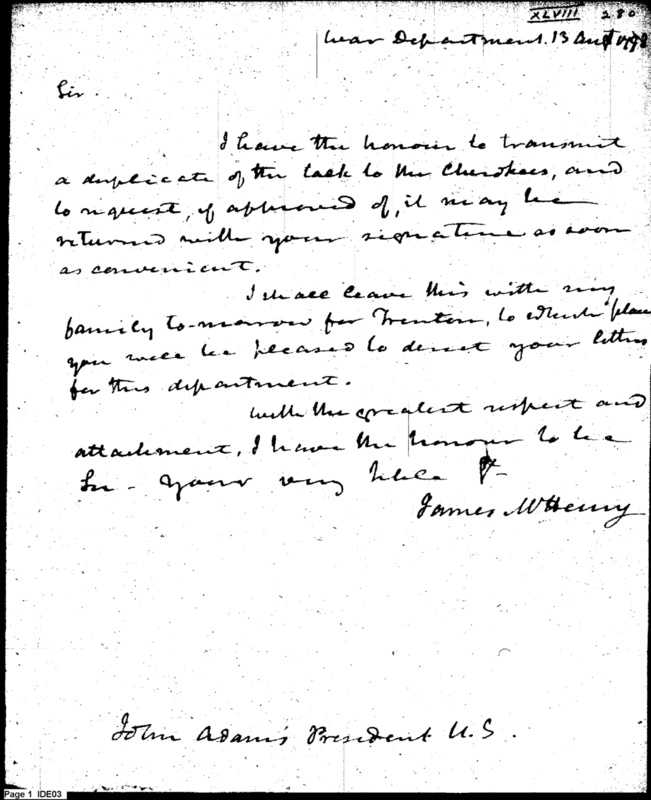 XLVIII 280
War Department. 13 Augt 1798
Sir.
I have the honour to transmit
a duplicate of the talk to the Cherokees, and
to request, if approved of, it may be
returned with your signature as soon
as convenient.
I shall leave this with my
family to-morrow for Trenton, to which place
you will be pleased to direct your letters
for this department.
With the greatest respect and
attachment, I have the honour to be
Sir - your very hble St
James McHenry
John Adams President U.S.
Page 1 IDE03